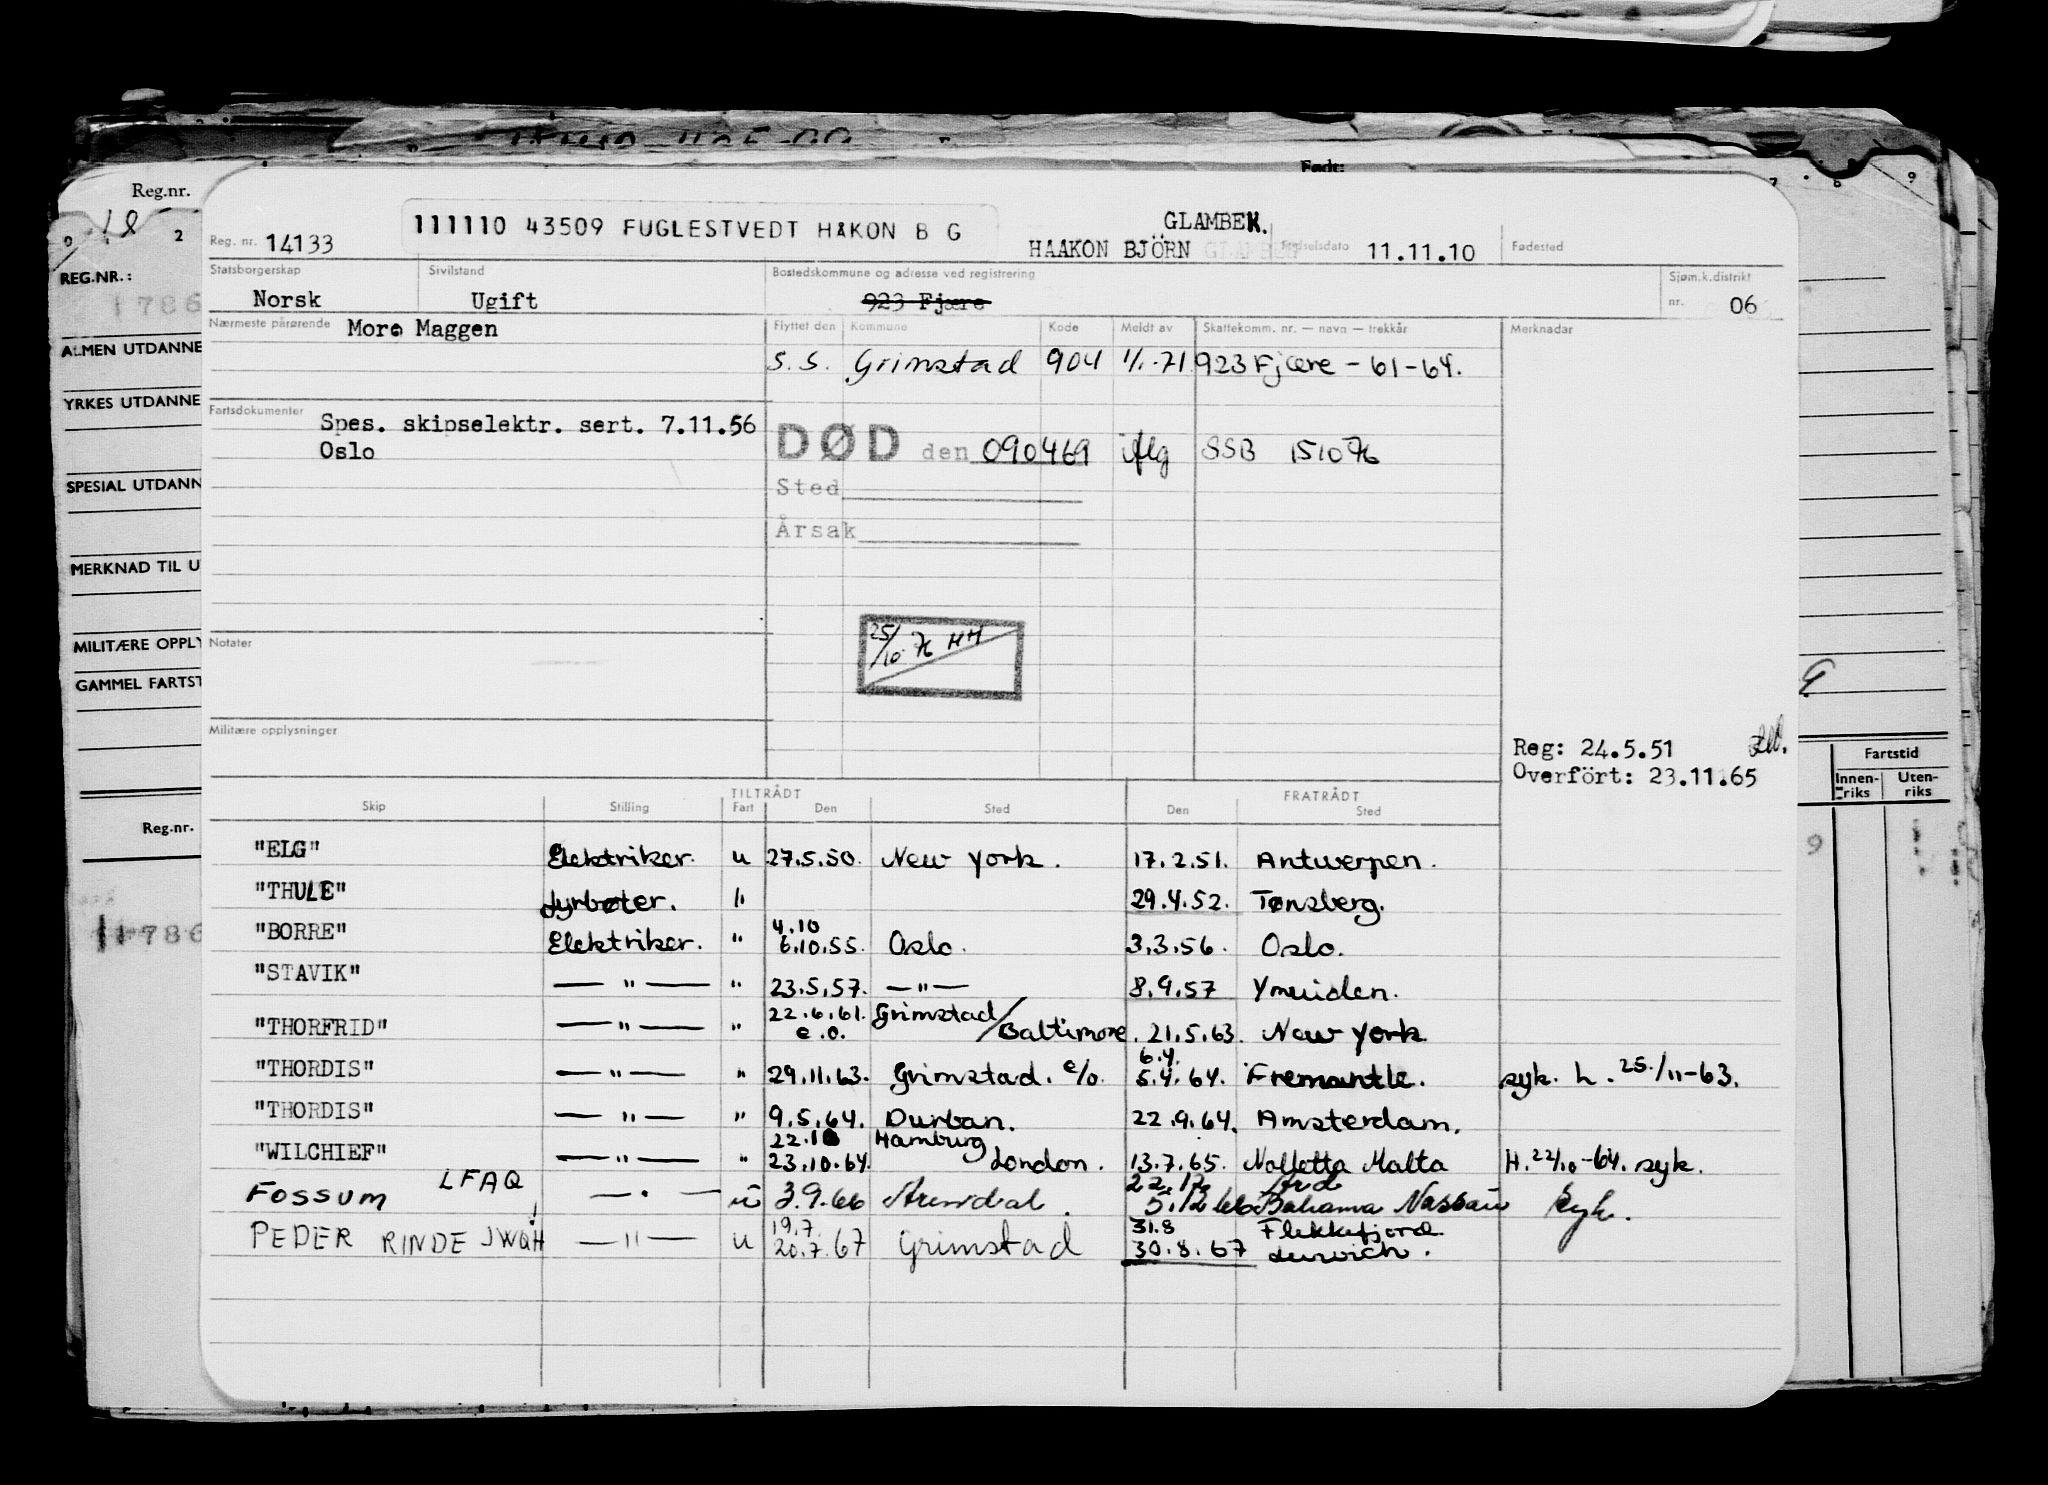 Født:
Reg.nr.
REG.NR.:
1786
ALMEN UTDANNE
YRKES UTDANNE
SPESIAL UTDANN
MERKNAD TIL U
MILITÆRE OPPLY
GAMMEL FARTST
Reg.nr.
11786
Reg. nr. 14133
111110 43509 FUGLESTVEDT HÅKON B G
GLAMBEK.
HAAKON BJÖRN
Fødselsdato 11.11.10
Fødested
Statsborgerskap Sivilstand Bostedskommune og adresse ved registrering Sjøm.k.distrikt
Norsk Ugift 923 Fjære nr. 06
Nærmeste pårørende More Maggen
Flyttet den Kommune Kode Meldt av Skattekomm. nr. — navn — trekkår Merknadar
S.S. Grimstad 904 1/1-71 923 Fjære - 61-64.
Fartsdokumenter Spes. skipselektr. sert. 7.11.56
Oslo
DØD den 090469 iflg SSB 151076
Sted
Årsak
25/10 76 HH
Notater
Militære opplysninger
Reg: 24.5.51
Overført: 23.11.65
Fartstid
Innen-riks Uten-riks
TILTRÅDT FRATRÅDT
Skip Stilling Fart Den Sted Den Sted
"ELG" Elektriker. u 27.5.50. New York. 17.2.51. Antwerpen.
"THULE" Fyrbøter. " 29.4.52. Tønsberg.
4.10
"BORRE" Elektriker. " 6.10.55. Oslo. 3.3.56. Oslo.
"STAVIK" — " — " 23.5.57. — " — 8.9.57 Ymuiden.
22.6.61. Grimstad/
"THORFRID" — " — " e.o. Baltimore. 21.5.63. New York
6.4.
"THORDIS" — " — " 29.11.63. Grimstad. e/o. 5.4.64. Fremantle. syk. h. 25./11-63.
"THORDIS" — " — " 9.5.64. Durban. 22.9.64. Amsterdam.
22.10 Hamburg
"WILCHIEF" — " — " 23.10.64. London. 13.7.65. Valletta Malta H. 22/10-64. syk.
22.12 Ard
FOSSUM LFAQ — " — u 3.9.66 Arendal. 5.12.66 Bahama Nassau Syk.
19.7. 31.8 Flekkefjord.
PEDER RINDE JWQH — " — u 20.7.67 Grimstad 30.8.67 Lerwick.